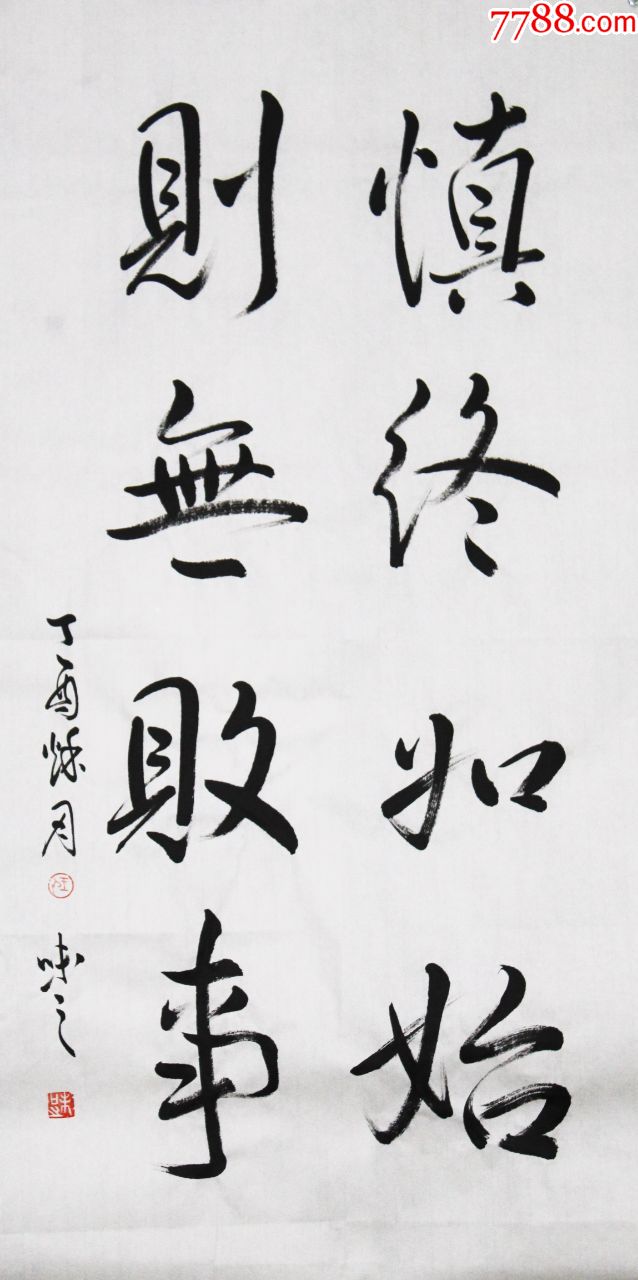 7788.com
慎終如始
則無敗事
丁酉烁月
味之
味